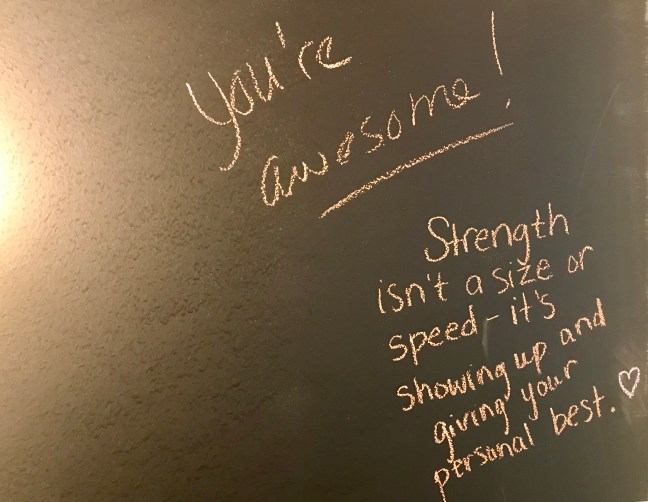 You're
awesome!
Strength
isn't a size or
speed - it's
showing up and
giving your
personal best. ♡